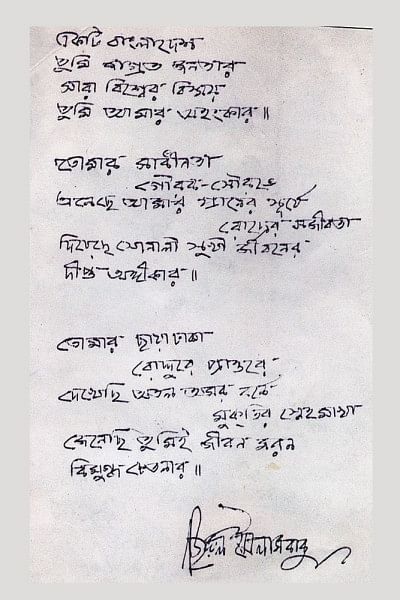 একটি বাংলাদেশ
তুমি জাগ্রত জনতার
সারা বিশ্বের বিস্ময়
তুমি আমার অহংকার॥
তোমার স্বাধীনতা
গৌরব-সৌরভে
এনেছে আমার প্রাণের সূর্যে
রোদের সজীবতা
দিয়েছে সোনালী সুখী জীবনের
দীপ্ত অঙ্গীকার॥
তোমার ছায়া ঢাকা
রোদ্দুরে প্রান্তরে
দেখেছি অতল অমর বর্ণে
মুক্তির স্নেহ মাখা
জেনেছি তুমিই জীবন মরন
বিমুগ্ধ চেতনার॥